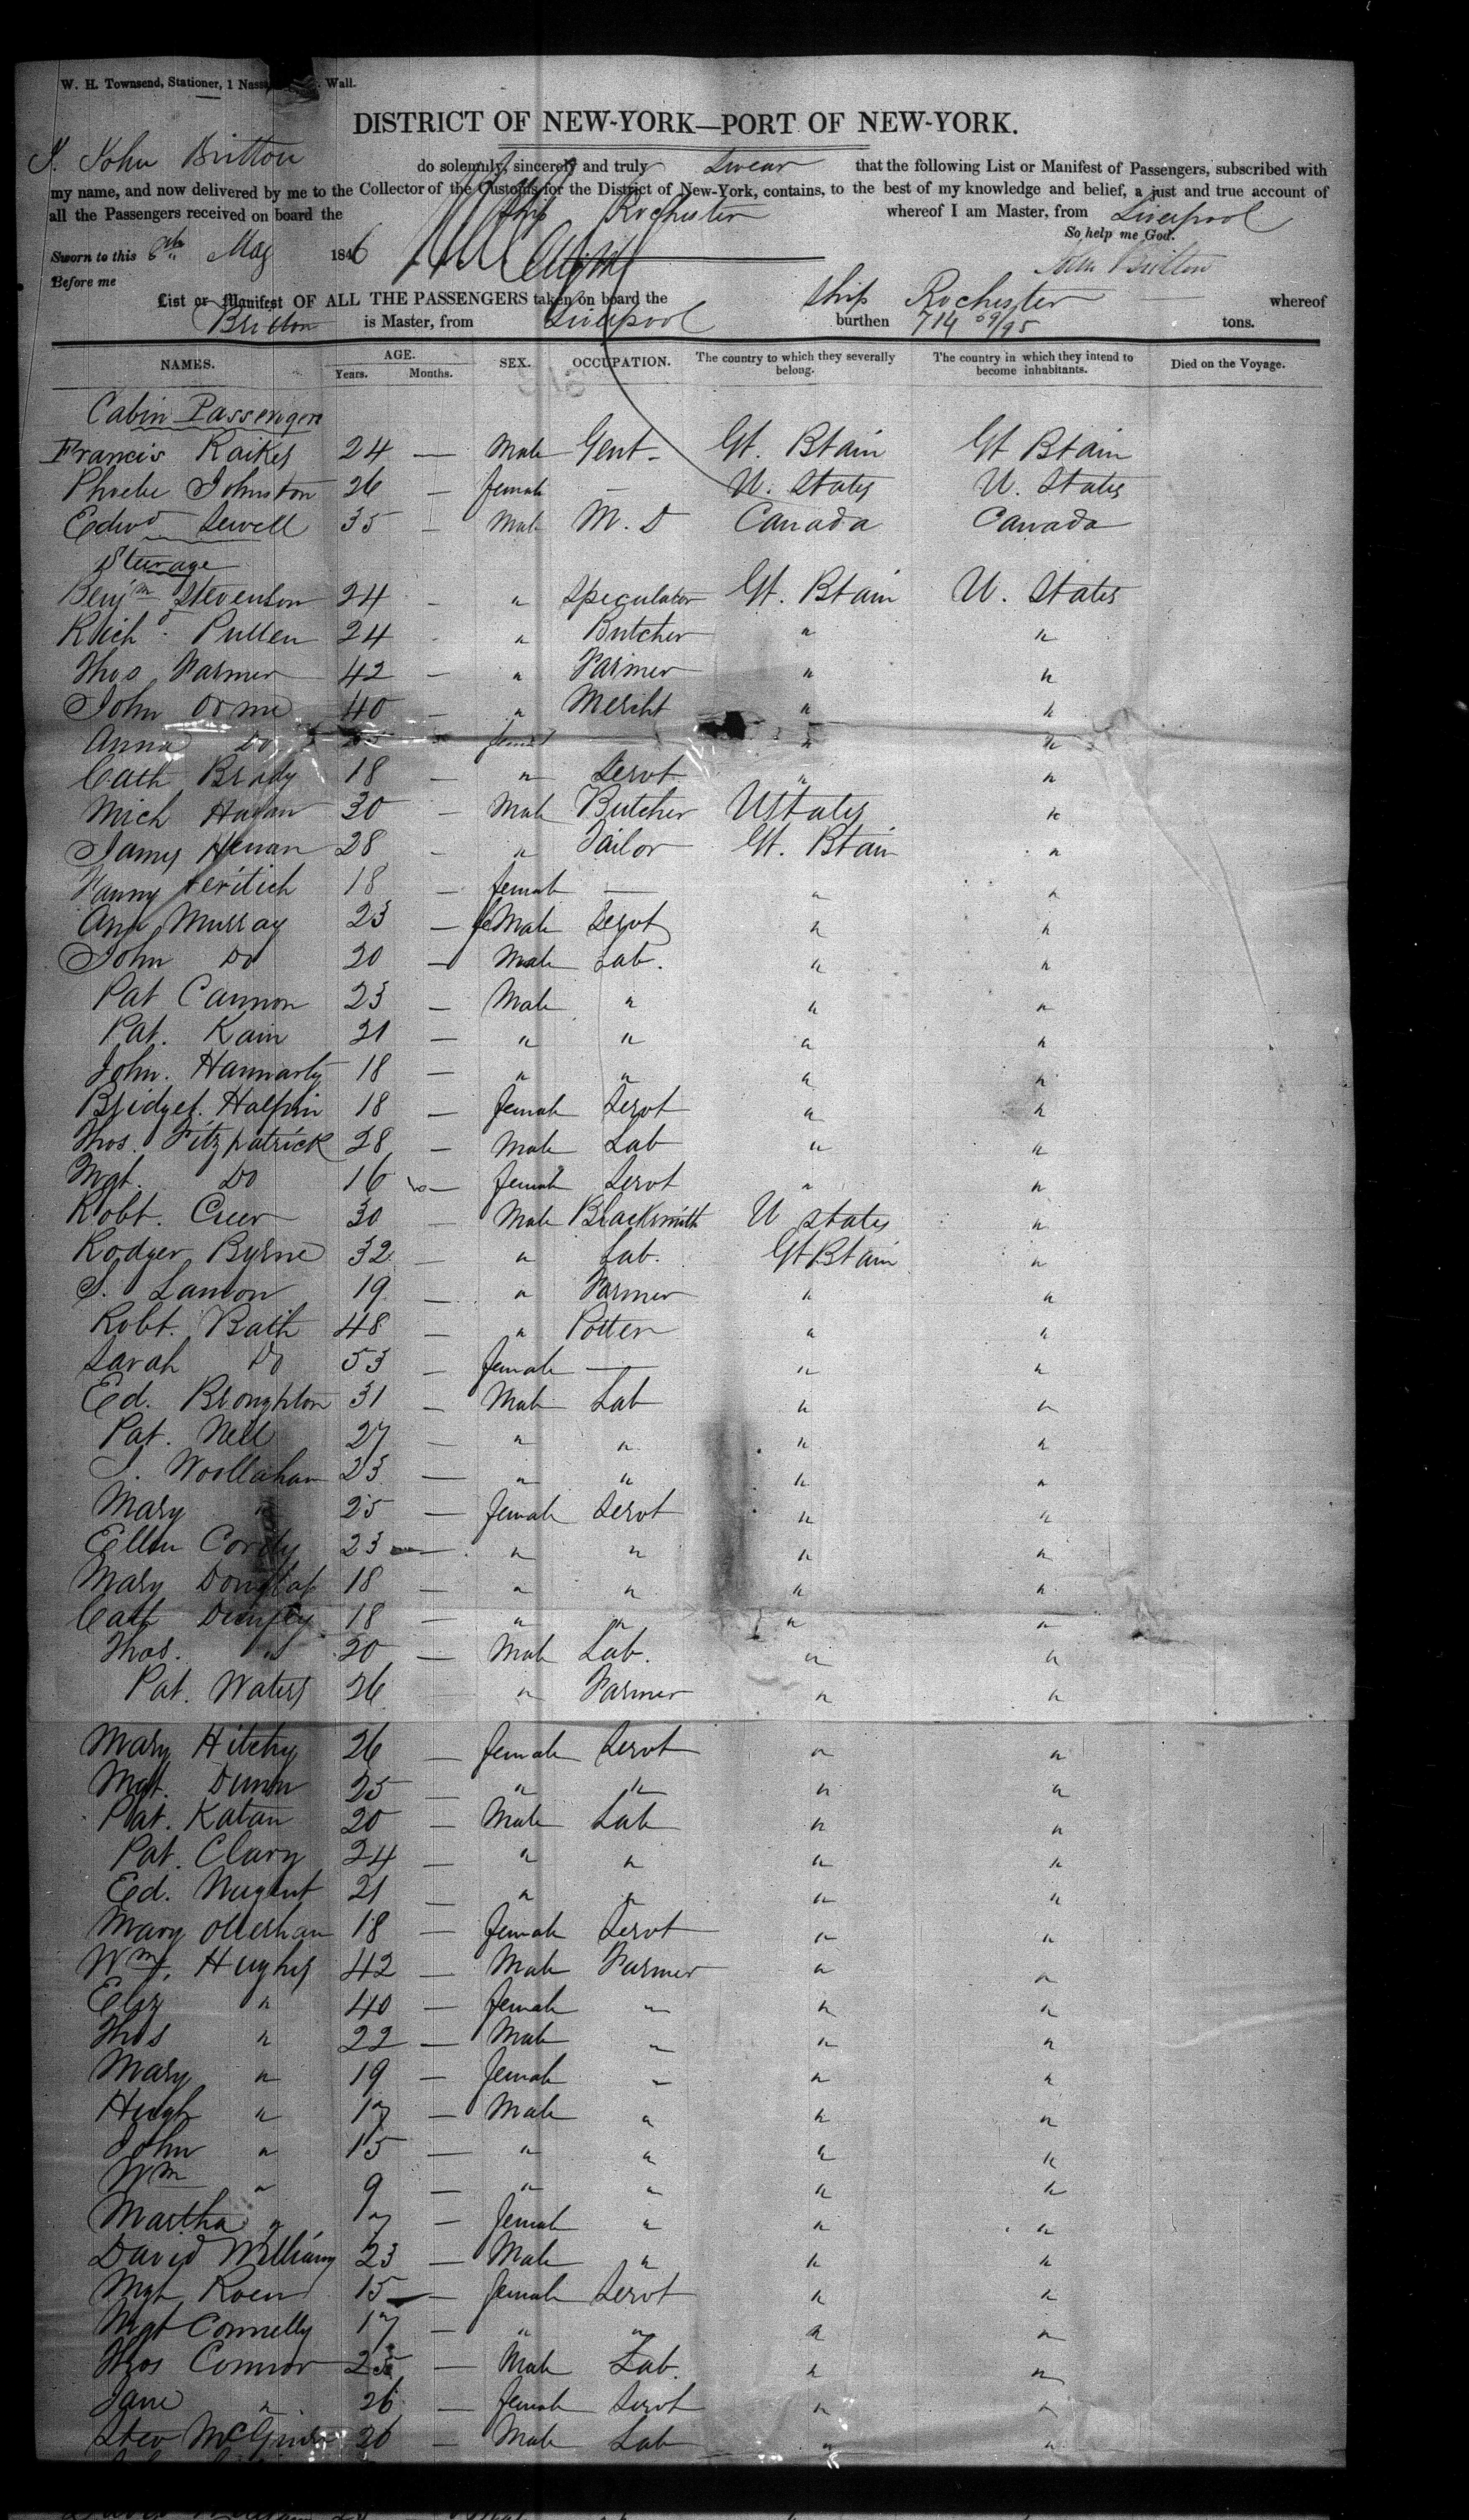 W. H. Townsend, Stationer, 1 Nassau Wall.
DISTRICT OF NEW-YORK—PORT OF NEW-YORK.
I, John Britton do solemnly, sincerely and truly Swear that the following List or Manifest of Passengers, subscribed with
my name, and now delivered by me to the Collector of the Customs for the District of New-York, contains, to the best of my knowledge and belief, a just and true account of
all the Passengers received on board the Ship Rochester whereof I am Master, from Liverpool
So help me God.
Sworn to this 6th May 1846 John Britton
Before me
List or Manifest OF ALL THE PASSENGERS taken on board the Ship Rochester whereof
Britton is Master, from Liverpool burthen 714 69/95 tons.
NAMES. AGE. Years. Months. SEX. OCCUPATION. The country to which they severally belong. The country in which they intend to become inhabitants. Died on the Voyage.
Cabin Passengers
Francis Raikes 24 — Male Gent. Gt. Btain Gt Btain
Phoebe Johnston 26 — female — U. States U. States
Edwd Sewell 35 — Male M. D Canada Canada
Steerage
Benjm Stevenson 24 - " Speculator Gt. Btain U. States
Richd Pullen 24 - " Butcher " "
Thos Farmer 42 — " Farmer " "
John Orme 40 — " Mercht " "
Anna Do female " "
Cath Brady 18 — " Servt " "
Mich Hagan 30 — Male Butcher U States "
James Henan 28 - " Tailor Gt. Btain "
Fanny 18 — female — " "
Ann Murray 23 — feMale Servt " "
John Do 20 — Male Lab. " "
Pat Cannon 23 — Male " " "
Pat. Kain 21 — " " " "
John. Hannarty 18 — " " " "
Bridget. Halpin 18 — female Servt " "
Thos. Fitzpatrick 28 — Male Lab " "
Mgt. Do 16 — female Servt " "
Robt. Creer 30 — Male Blacksmith U States "
Rodger Byrne 32 — " Lab. Gt Btain "
S. Lanton 19 — " Farmer " "
Robt. Bath 48 — " Potter " "
Sarah Do 53 — female — " "
Ed. Broughton 31 — Male Lab " "
Pat. Neil 27 — " " " "
J. Woollahan 23 — " " " "
Mary " 25 — female Servt " "
Ellen 23 — " " " "
Mary 18 — " " " "
Cath 18 — " " " "
Thos. " 20 — Male Lab. " "
Pat. Waters 26 — " Farmer " "
Mary Hitchy 26 — female Servt " "
Mgt. Dunn 25 — " " " "
Pat. Katan 20 — Male Lab " "
Pat. Clary 24 — " " " "
Ed. Nugent 21 — " " " "
Mary Ollerhan 18 — female Servt " "
Wm. Hughes 42 — Male Farmer " "
Eliz " 40 — female " " "
Thos " 22 — Male " " "
Mary " 19 — female " " "
Hugh " 17 — Male " " "
John " 15 — " " " "
Wm " 9 — " " " "
Martha " 17 — female " " "
David Williams 23 — Male " " "
Mgt Roen 15 — female Servt " "
Mgt Connelly 17 — " " " "
Thos Connor 25 — Male Lab. " "
Jane " 26 — female Servt " "
Stev 26 — Male Lab " "